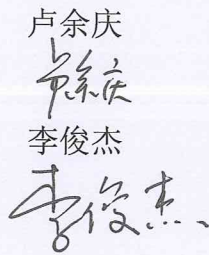 卢余庆
卢余庆
李俊杰
李俊杰